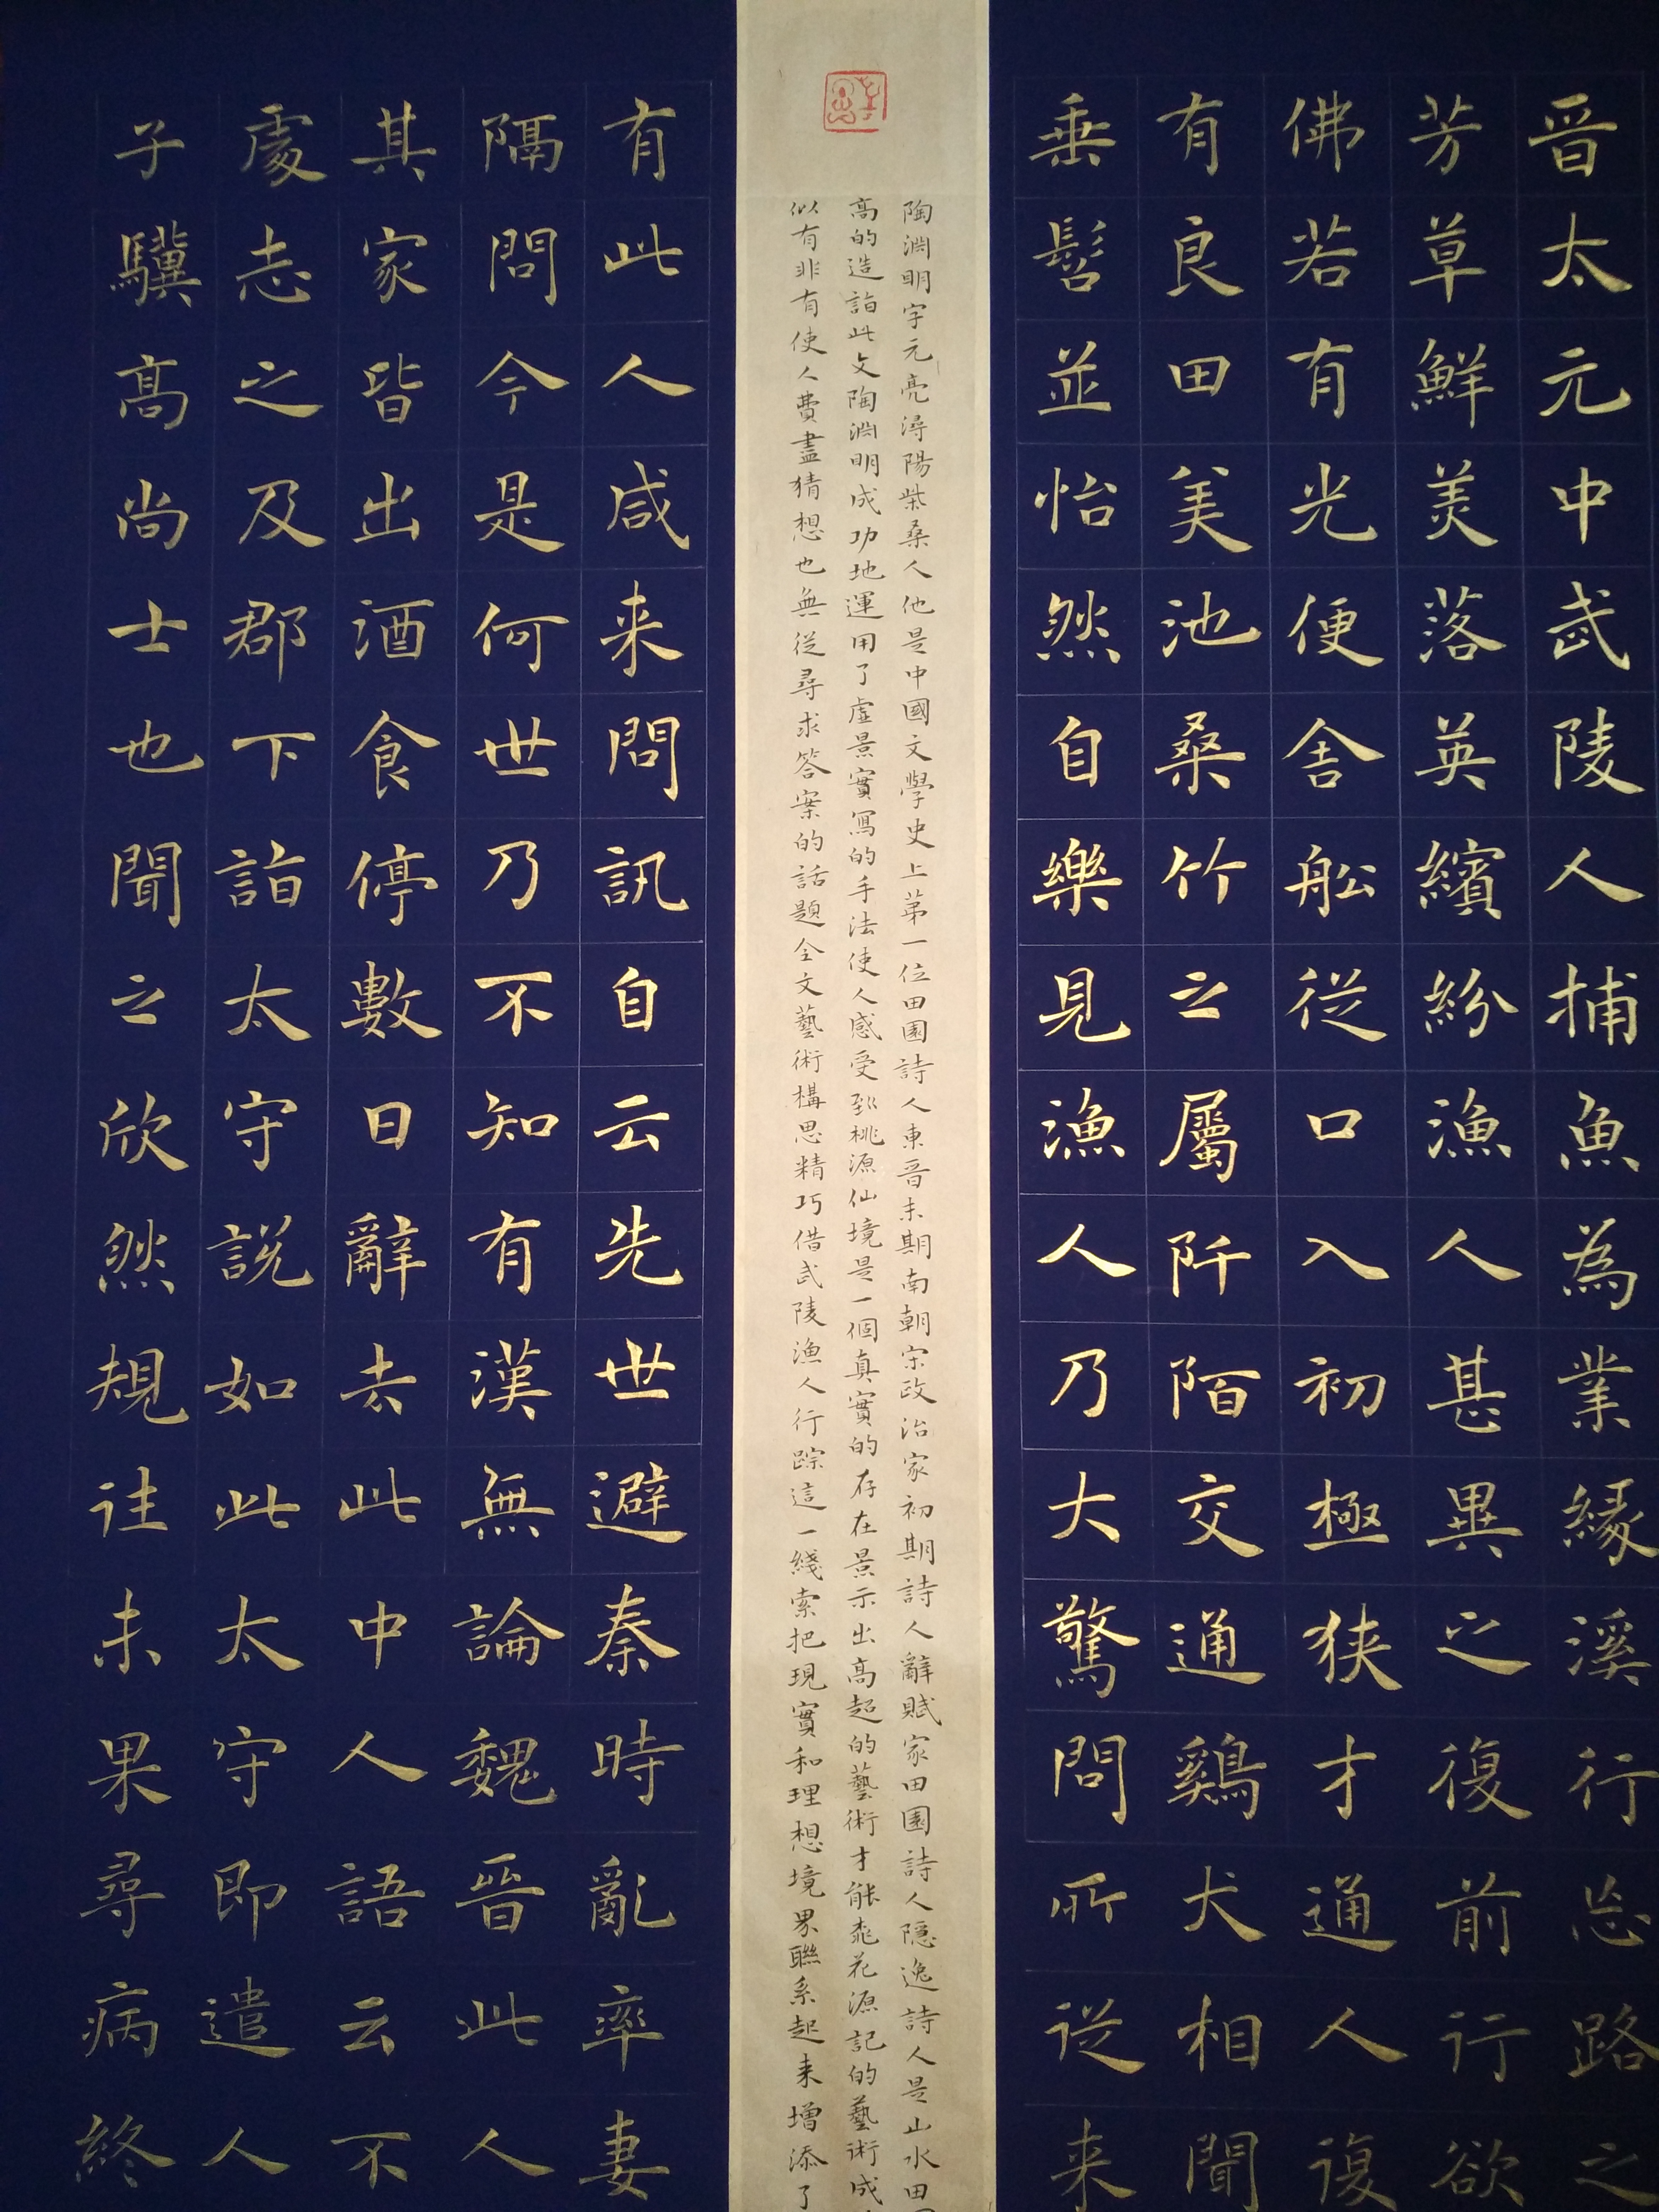 晋太元中武陵人捕魚為業緣溪行忘路之
芳草鮮美落英繽紛漁人甚異之復前行欲
佛若有光便舍船從口入初極狭才通人復
有良田美池桑竹之屬阡陌交通鷄犬相聞
垂髫並怡然自樂見漁人乃大驚問所從来
陶淵明字元亮潯陽柴桑人他是中國文學史上第一位田園詩人東晋末期南朝宋政治家初期詩人辭賦家田園詩人隱逸詩人是山水田
高的造詣此文陶淵明成功地運用了虛景實寫的手法使人感受到桃源仙境是一個真實的存在景示出高超的藝術才能桃花源記的藝術成
似有非有使人費盡猜想也無從尋求答案的話題全文藝術構思精巧借武陵漁人行踪這一綫索把現實和理想境界聯系起来增添了
有此人咸来問訊自云先世避秦時亂率妻
隔問今是何世乃不知有漢無論魏晋此人
其家皆出酒食停數日辭去此中人語云不
處志之及郡下詣太守說如此太守即遣人
子驥高尚士也聞之欣然規往未果尋病終